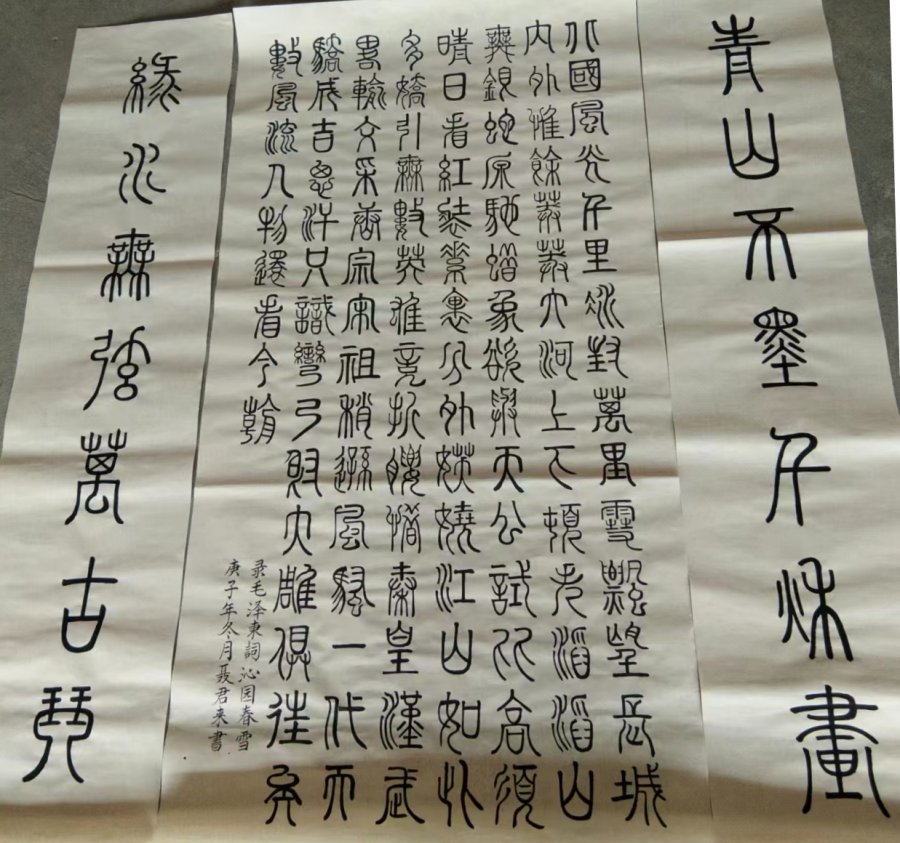 青山不墨千秋畫
北國風光千里冰封萬里雪飄望長城
内外惟餘莽莽大河上下頓失滔滔山
舞銀蛇原馳蜡象欲與天公試比高須
晴日看紅裝素裹分外妖嬈江山如此
多嬌引無數英雄竞折腰惜秦皇漢武
畧輸文采唐宗宋祖稍遜風騷一代天
驕成吉思汗只識彎弓射大雕俱往矣
數風流人物還看今朝
录毛泽東詞沁园春雪
庚子年冬月聂君来書
綠水無弦萬古琴